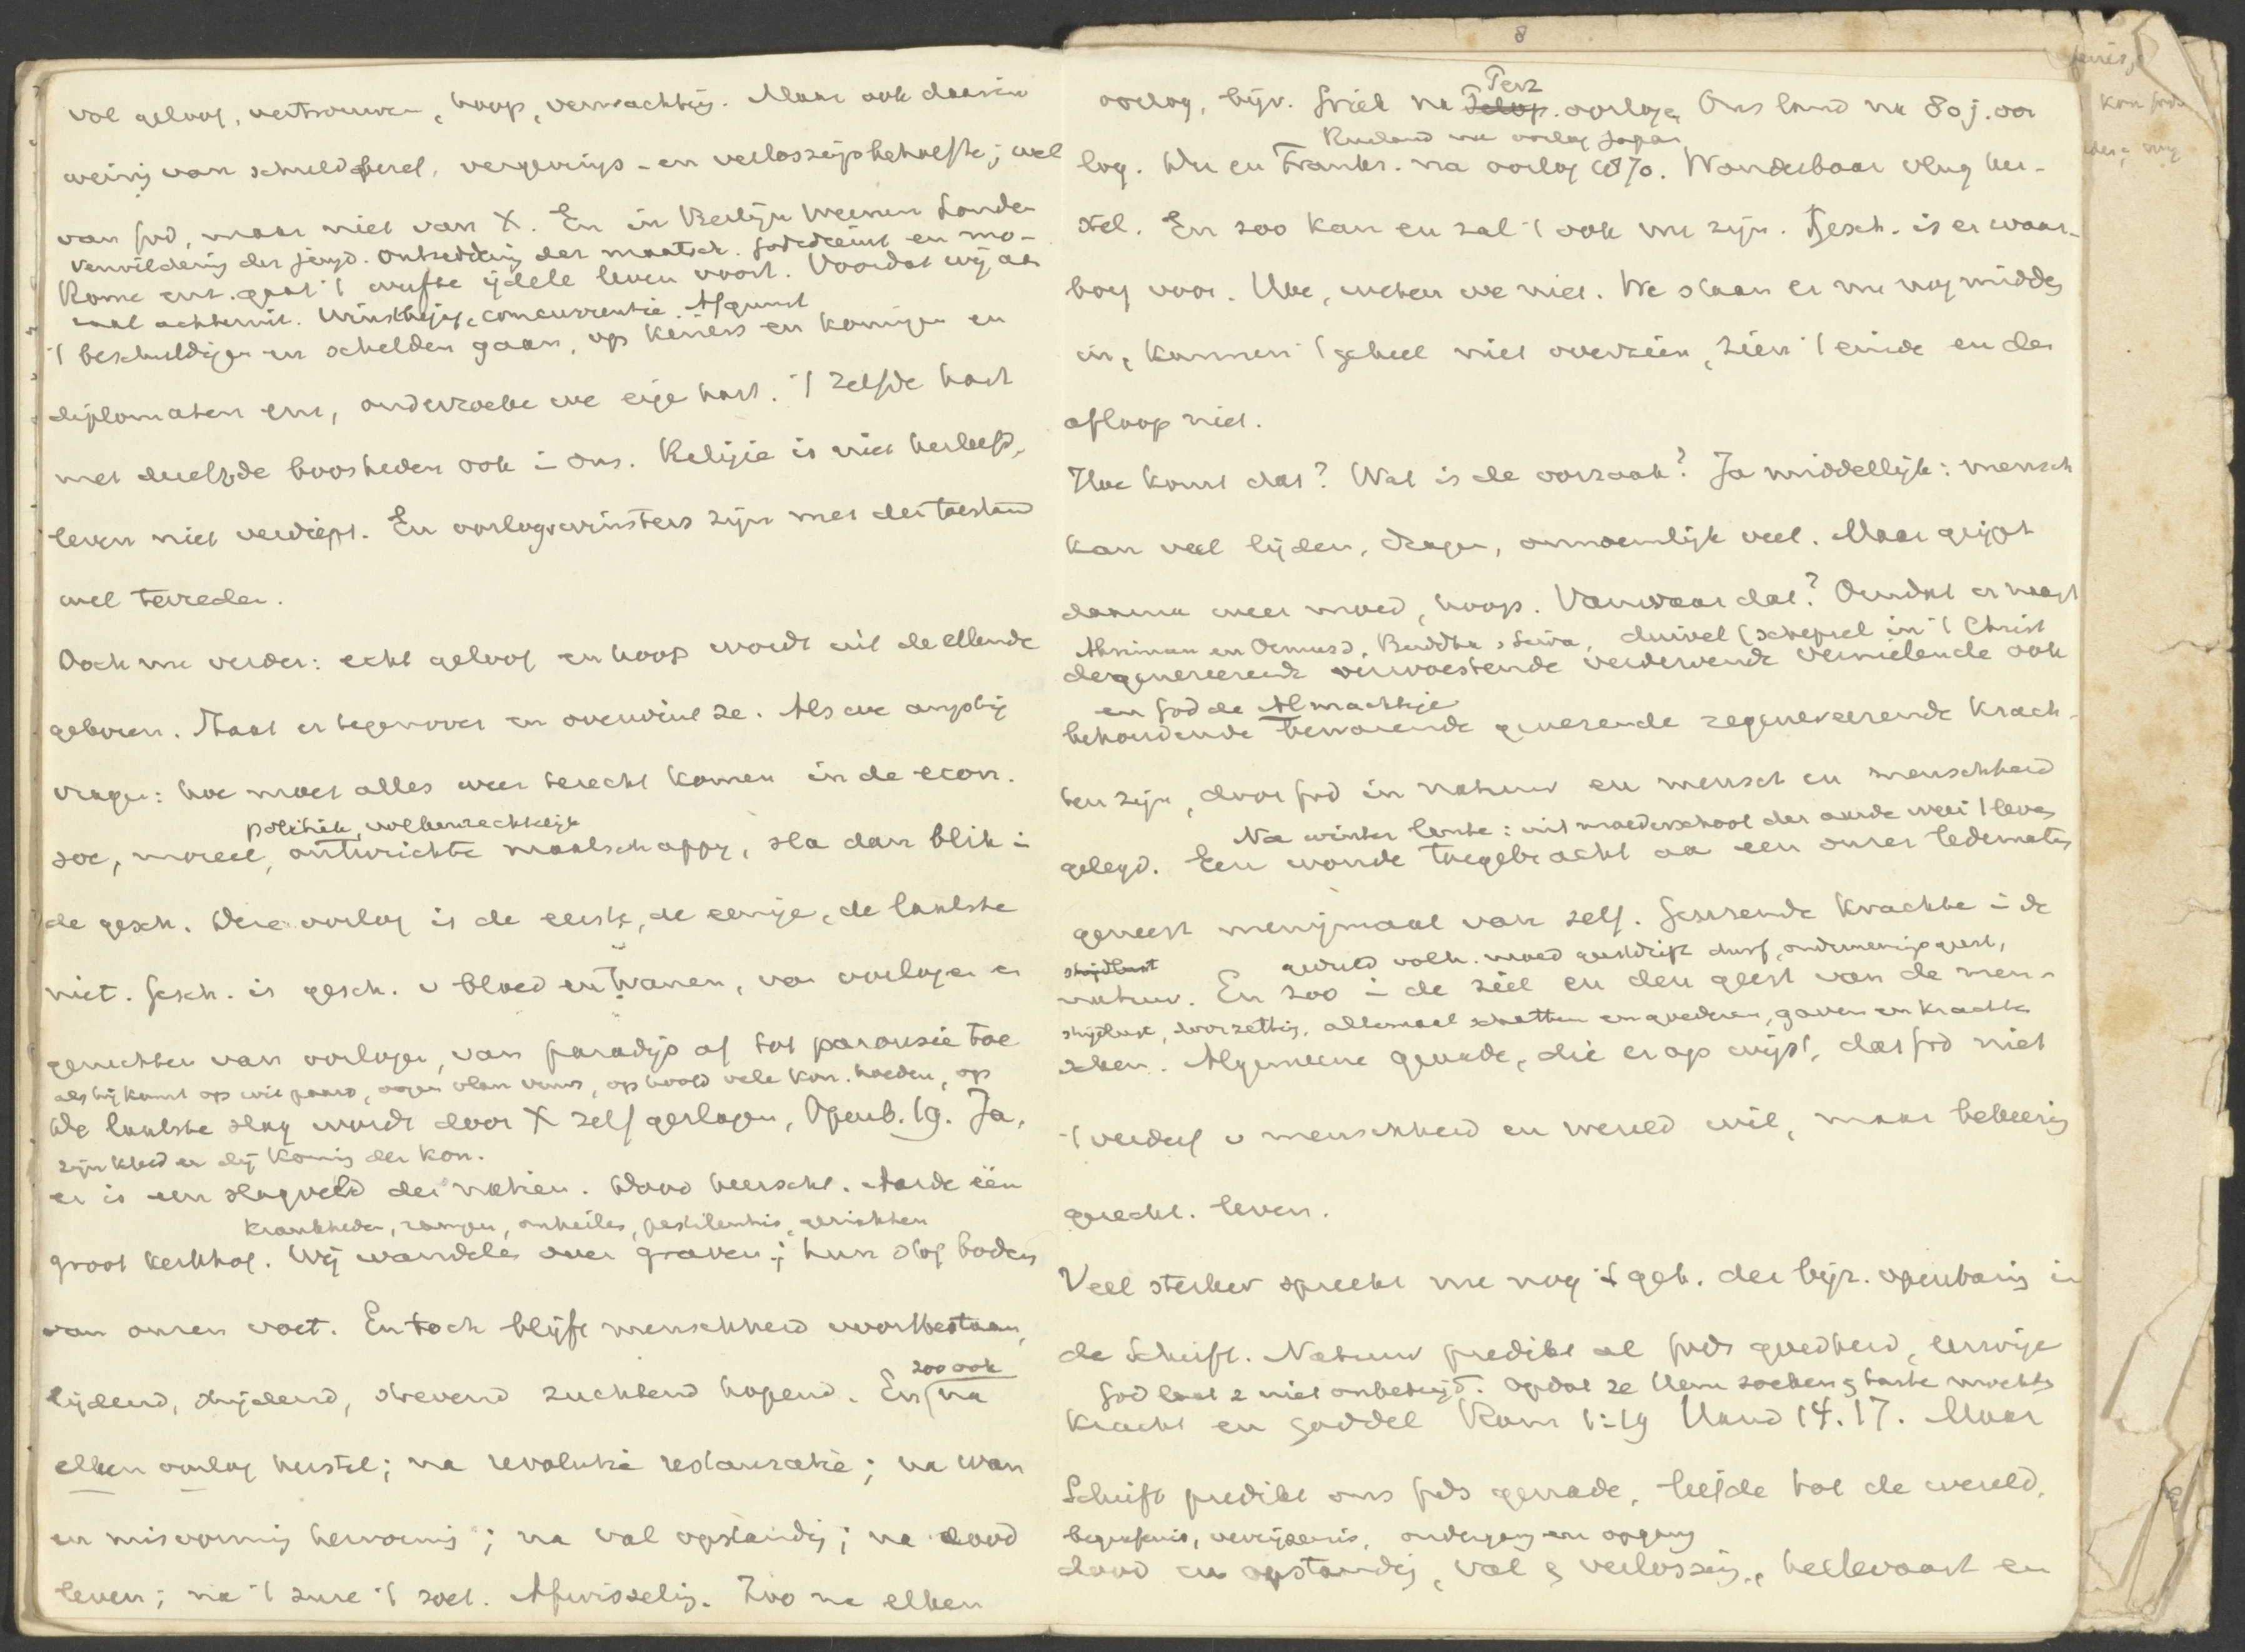 vol geloof, vertrouwen, hoop, verwachting. Maar ook daarin
weinig van schuldbesef, vergevings- en verlossingsbehoefte; wel
van God, maar niet van X. En in Berlijn Weenen Londen
verwildering der jeugd. ontredding der maatsch. Godsdienst en mo-
Rome enz. gaat 't wufte ijdele leven voort. Voordat wij aan
raal achteruit. Winstbejag, concurrentie. Afgunst
't beschuldigen en schelden gaan, op keizers en koningen en
diplomaten enz, onderzoeke we eige hart. 't Zelfde hart
met dezelfde boosheden ook i ons. Religie is niet herleefd,
leven niet verdiept. En oorlogswinsters zijn met den toestand
wel tevreden.
Doch nu verder: echt geloof en hoop wordt uit de ellende
geboren. Staat er tegenover en overwint ze. Als we angstig
vragen: hoe moet alles weer terecht komen in de econ.
politiek, volkenrechtelijk
soc, moreel, ontwrichte maatschappij, sla dan blik i
de gesch. Deze oorlog is de eerste, de eenige, de laatste
niet. Gesch. is gesch. v bloed en tranen, van oorlogen en
geruchten van oorlogen, van paradijs af tot parousie toe
als hij komt op wit paard, oogen vlam vuurs, op hoofd vele kon. hoeden, op
De laatste slag wordt door X zelf geslagen, Openb. 19. Ja,
zijn kleed en dij Koning der kon.
er is een slagveld der natien. Dood heerscht. Aarde één
krankheden, rampen, onheilen, pestilentie, gerichten
groot kerkhof. Wij wandelen over graven; hun stof bodem
van onzen voet. En toch blijft menschheid voortbestaan,
lijdend, strijdend, strevend zuchtend hopend. En
zoo ook
na
elken oorlog herstel; na revolutie restauratie; na wan
en misvorming hervorming; na val opstanding; na dood
leven; na 't zure 't zoet. Afwisseling. Zoo na elken
8
oorlog, bijv. Griek na
Perz
oorlogen, Ons land na 80 j. oor
Rusland na oorlog Japan
log. Du en Frankr. na oorlog 1870. Wonderbaar vlug her-
stel. En zoo kan en zal 't ook nu zijn. Gesch. is er waar-
borg voor. Hoe, weten we niet. We staan er nu nog midden
in, kunnen 't geheel niet overzien, zien 't einde en den
afloop niet.
Hoe komt dat? Wat is de oorzaak? Ja middellijk: mensch
kan veel lijden, dragen, onnoemlijk veel. Maar grijpt
daarna weer moed, hoop. Vanwaar dat? Omdat er naast
Ahriman en Ormusd, Buddha, Siwa, duivel (schepsel in 't Christ
degenereerende verwoestende verdervende vernielende ook
en God de Almachtige
behoudende bewarende generende regenereerende krach-
ten zijn, door God in natuur en mensch en menschheid
Na winter lente: uit moederschoot der aarde weer 't leven
gelegd. Een wonde toegebracht aan een onzer ledematen
geneest menigmaal van zelf. Genezende krachten i de
strijdlust geduld volh. moed geestdrift durf, ondernemingsgeest,
natuur. En zoo i de ziel en den geest van de men-
strijdlust, doorzetting, allemaal schatten en goederen, gaven en krachten
schen. Algemeene genade, die erop wijst, dat God niet
't verderf v menschheid en wereld wil, maar bekeering
gerecht. leven.
Veel sterker spreekt nu nog 't geb. der bijz. openbaring in
de Schrift. Natuur predikt al Gods goedheid, eeuwige
God laat z niet onbetuigd. opdat ze Hem zoeken & tasten mochten
kracht en goddel Rom 1:19 Hand 14.17. Maar
Schrift predikt ons Gods genade, liefde tot de wereld,
begrafenis, verrijzenis, ondergang en opgang
dood en opstanding, val & verlossing, hellevaart en